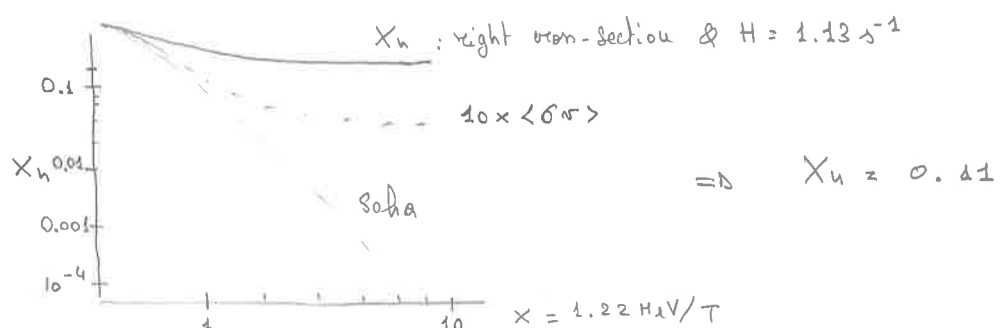 Xn : right cross-section & H = 1.13 s⁻¹
0.1
10 x <σv>
Xn 0.01
=> Xn = 0.11
Saha
0.001
10⁻⁴
1 10 x = 1.22 MeV/T